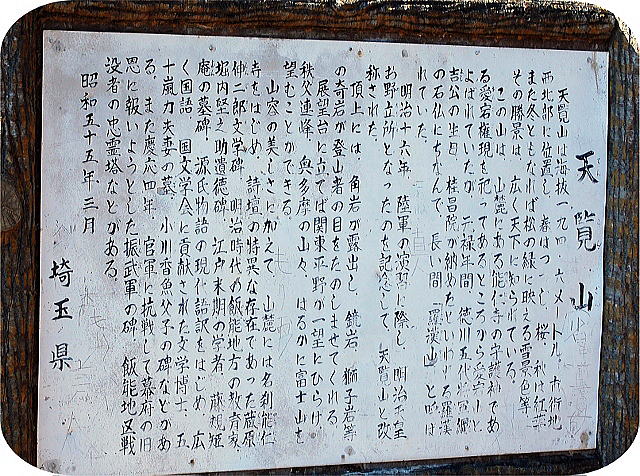 天覧山
天覧山は海抜一九四・六メートル、市街地
西北部に位置し、春はつつじ、桜、秋は紅葉
また冬ともなれば松の緑に映える雪景色等
その勝景は、広く天下に知られている。
この山は、山麓にある能仁寺の守護神であ
る愛宕権現を祀ってあるところから愛宕山と
よばれていたが、元禄年間、徳川五代将軍綱
吉公の生母、桂昌院が納めたといわれる羅漢
の石仏にちなんで、長い間「羅漢山」と呼ば
れていた。
明治十六年、陸軍の演習に際し、明治天皇
お野立所となったのを記念して、天覧山と改
称された。
頂上には、角岩が露出し、鏡岩、獅子岩等
の奇岩が登山者の目をたのしませてくれる
展望台に立てば関東平野が一望にひらけ
秩父連峰、奥多摩の山々、はるかに富士山を
望むことができる。
山容の美しさにかてえて、山麓には名刹能仁
寺をはじめ、詩壇の特異な存在であった蔵原
伸二郎文学碑、明治時代の飯能地方の教育家
堀内堅之助遺徳碑、江戸末期の学者、蔵規矩
庵の墓碑、源氏物語の現代語訳をはじめ、広
く国語、国文学会に貢献された文学博士、五
十嵐力夫妻の墓、小川香魚父子の碑などがあ
る。また慶応四年、官軍に抗戦して幕府の旧
恩に報いようとした振武軍の碑、飯能地区戦
没者の忠霊塔などがある。
昭和五十五年三月
埼玉県